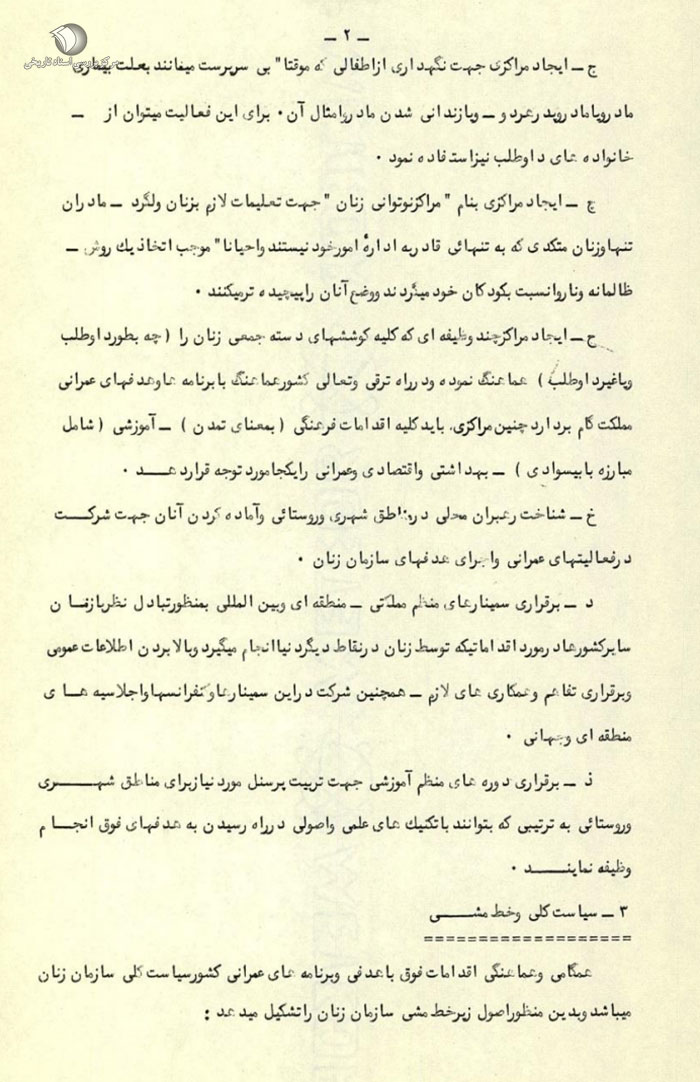 مرکز بررسی اسناد تاریخی
ـ ۲ ـ
ج ـ ایجاد مراکزی جهت نگهداری ازاطفالی که موقتا" بی سرپرست میمانند بعلت بیماری
مادرویامادروپدرهردو ـ ویازندانی شدن مادروامثال آن ۰ برای این فعالیت میتوان از ـ
خانواده های داوطلب نیزاستفاده نمود ۰
چ ـ ایجاد مراکزی بنام " مراکزنوتوانی زنان " جهت تعلیمات لازم بزنان ولگرد ـ مادران
تنهاوزنان متکدی که به تنهائی قادربه ادارهٔ امورخود نیستند واحیانا" موجب اتخاذیك روش ـ
ظالمانه ونارو انسبت بکودکان خود میگردند ووضع آنان راپیچیده ترمیکنند ۰
ح ـ ایجاد مراکزچند وظیفه ای که کلیه کوششهای دسته جمعی زنان را ( چه بطورداوطلب
ویاغیرداوطلب ) هماهنگ نموده ودرراه ترقی وتعالی کشورهماهنگ بابرنامه هاوهدفهای عمرانی
مملکت گام بردارد چنین مراکزی، باید کلیه اقدامات فرهنگی ( بمعنای تمدن ) ـ آموزشی ( شامل
مبارزه بابیسوادی ) ـ بهداشتی واقتصادی وعمرانی رایکجامورد توجه قراردهـــد ۰
خ ـ شناخت رهبران محلی درمناطق شهری وروستائی وآماده کردن آنان جهت شرکـــت
درفعالیتهای عمرانی واجرای هدفهای سازمان زنان ۰
د ـ برقراری سمینارهای منظم مملکتی ـ منطقه ای وبین المللی بمنظورتبادل نظربازنـان
سایرکشورهادرمورد اقداماتیکه توسط زنان درنقاط دیگردنیاانجام میگیرد وبالابردن اطلاعات عمومی
وبرقراری تفاهم وهمکاری های لازم ـ همچنین شرکت دراین سمینارهاوکنفرانسهاواجلاسیه هـا ی
منطقه ای وجهانی ۰
ذ ـ برقراری دوره های منظم آموزشی جهت تربیت پرسنل مورد نیازبرای مناطق شهـــری
وروستائی به ترتیبی که بتوانند باتکنیك های علمی واصولی درراه رسیدن به هدفهای فوق انجـام
وظیفه نماینـــد ۰
۳ ـ سیاست کلی وخط مشـــی
===================
همگامی وهماهنگی اقدامات فوق باهدفی وبرنامه های عمرانی کشورسیاست کلی سازمان زنان
میباشد وبدین منظوراصول زیرخط مشی سازمان زنان راتشکیل میدهد :